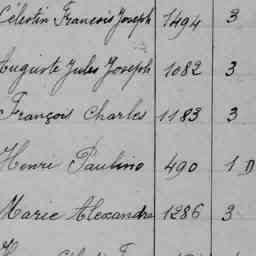 Célestin François Joseph 1494 3
Auguste Jules Joseph 1082 3
François Charles 1183 3
Henri Paulino 490 1 D
Marie Alexandre 1286 3